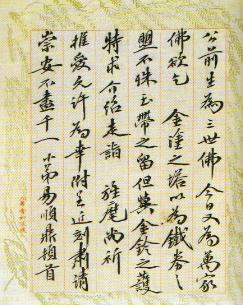 公前生為三世佛今日又為萬家
佛欲乞 金塗之塔以為鐵券之
盟不殊玉帶之留但冀金鈴之護
特求 介紹走詣 旌麾尚祈
推愛允許為幸附呈近刻肅請
崇安不盡千一 小弟易順鼎頓首